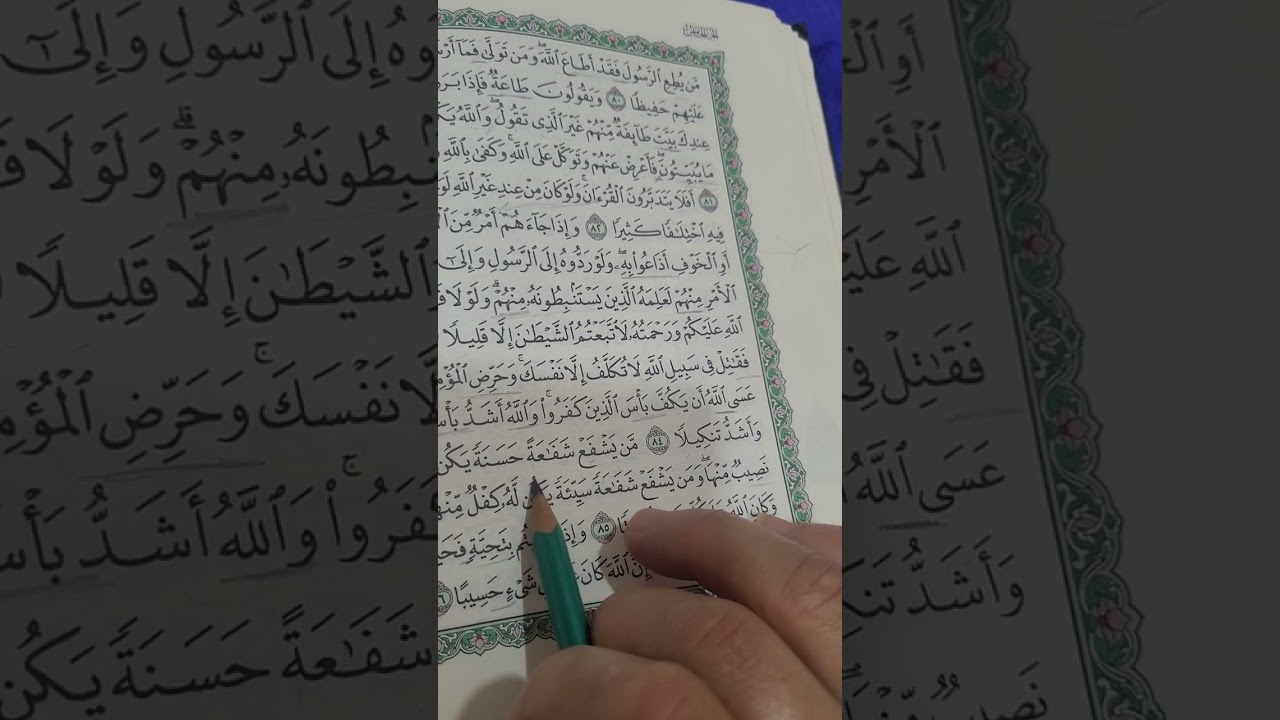 مَّن يُطِعِ ٱلرَّسُولَ فَقَدْ أَطَاعَ ٱللَّهَ ۖ وَمَن تَوَلَّىٰ فَمَآ
عَلَيْهِمْ حَفِيظًا ٨٠ وَيَقُولُونَ طَاعَةٌ فَإِذَا
عِندِكَ بَيَّتَ طَآئِفَةٌ مِّنْهُمْ غَيْرَ ٱلَّذِى تَقُولُ ۖ وَٱللَّهُ
مَا يُبَيِّتُونَ ۖ فَأَعْرِضْ عَنْهُمْ وَتَوَكَّلْ عَلَى ٱللَّهِ ۚ وَكَفَىٰ بِٱللَّهِ
٨١ أَفَلَا يَتَدَبَّرُونَ ٱلْقُرْءَانَ ۚ وَلَوْ كَانَ مِنْ عِندِ غَيْرِ ٱللَّهِ
فِيهِ ٱخْتِلَـٰفًا كَثِيرًا ٨٢ وَإِذَا جَآءَهُمْ أَمْرٌ مِّنَ
أَوِ ٱلْخَوْفِ أَذَاعُوا۟ بِهِۦ ۖ وَلَوْ رَدُّوهُ إِلَى ٱلرَّسُولِ وَإِلَىٰٓ
ٱلْأَمْرِ مِنْهُمْ لَعَلِمَهُ ٱلَّذِينَ يَسْتَنۢبِطُونَهُۥ مِنْهُمْ ۗ وَلَوْلَا
ٱللَّهِ عَلَيْكُمْ وَرَحْمَتُهُۥ لَٱتَّبَعْتُمُ ٱلشَّيْطَـٰنَ إِلَّا قَلِيلًا
فَقَـٰتِلْ فِى سَبِيلِ ٱللَّهِ لَا تُكَلَّفُ إِلَّا نَفْسَكَ ۚ وَحَرِّضِ
عَسَى ٱللَّهُ أَن يَكُفَّ بَأْسَ ٱلَّذِينَ كَفَرُوا۟ ۚ وَٱللَّهُ أَشَدُّ
وَأَشَدُّ تَنكِيلًا ٨٤ مَّن يَشْفَعْ شَفَـٰعَةً حَسَنَةً يَكُن
نَصِيبٌ مِّنْهَا ۖ وَمَن يَشْفَعْ شَفَـٰعَةً سَيِّئَةً لَّهُۥ كِفْلٌ
وَكَانَ ٱللَّهُ ٨٥ بِتَحِيَّةٍ
إِنَّ ٱللَّهَ كَانَ شَىْءٍ حَسِيبًا